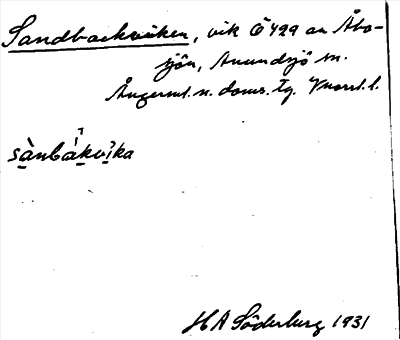 Sandbackviken, vik Ö 499 an Åbo-
sjön, Anundsjö sn.
Ångerml. n. doms. tg. Vnorrl. l.
sànbákvìka
H A Söderberg 1931